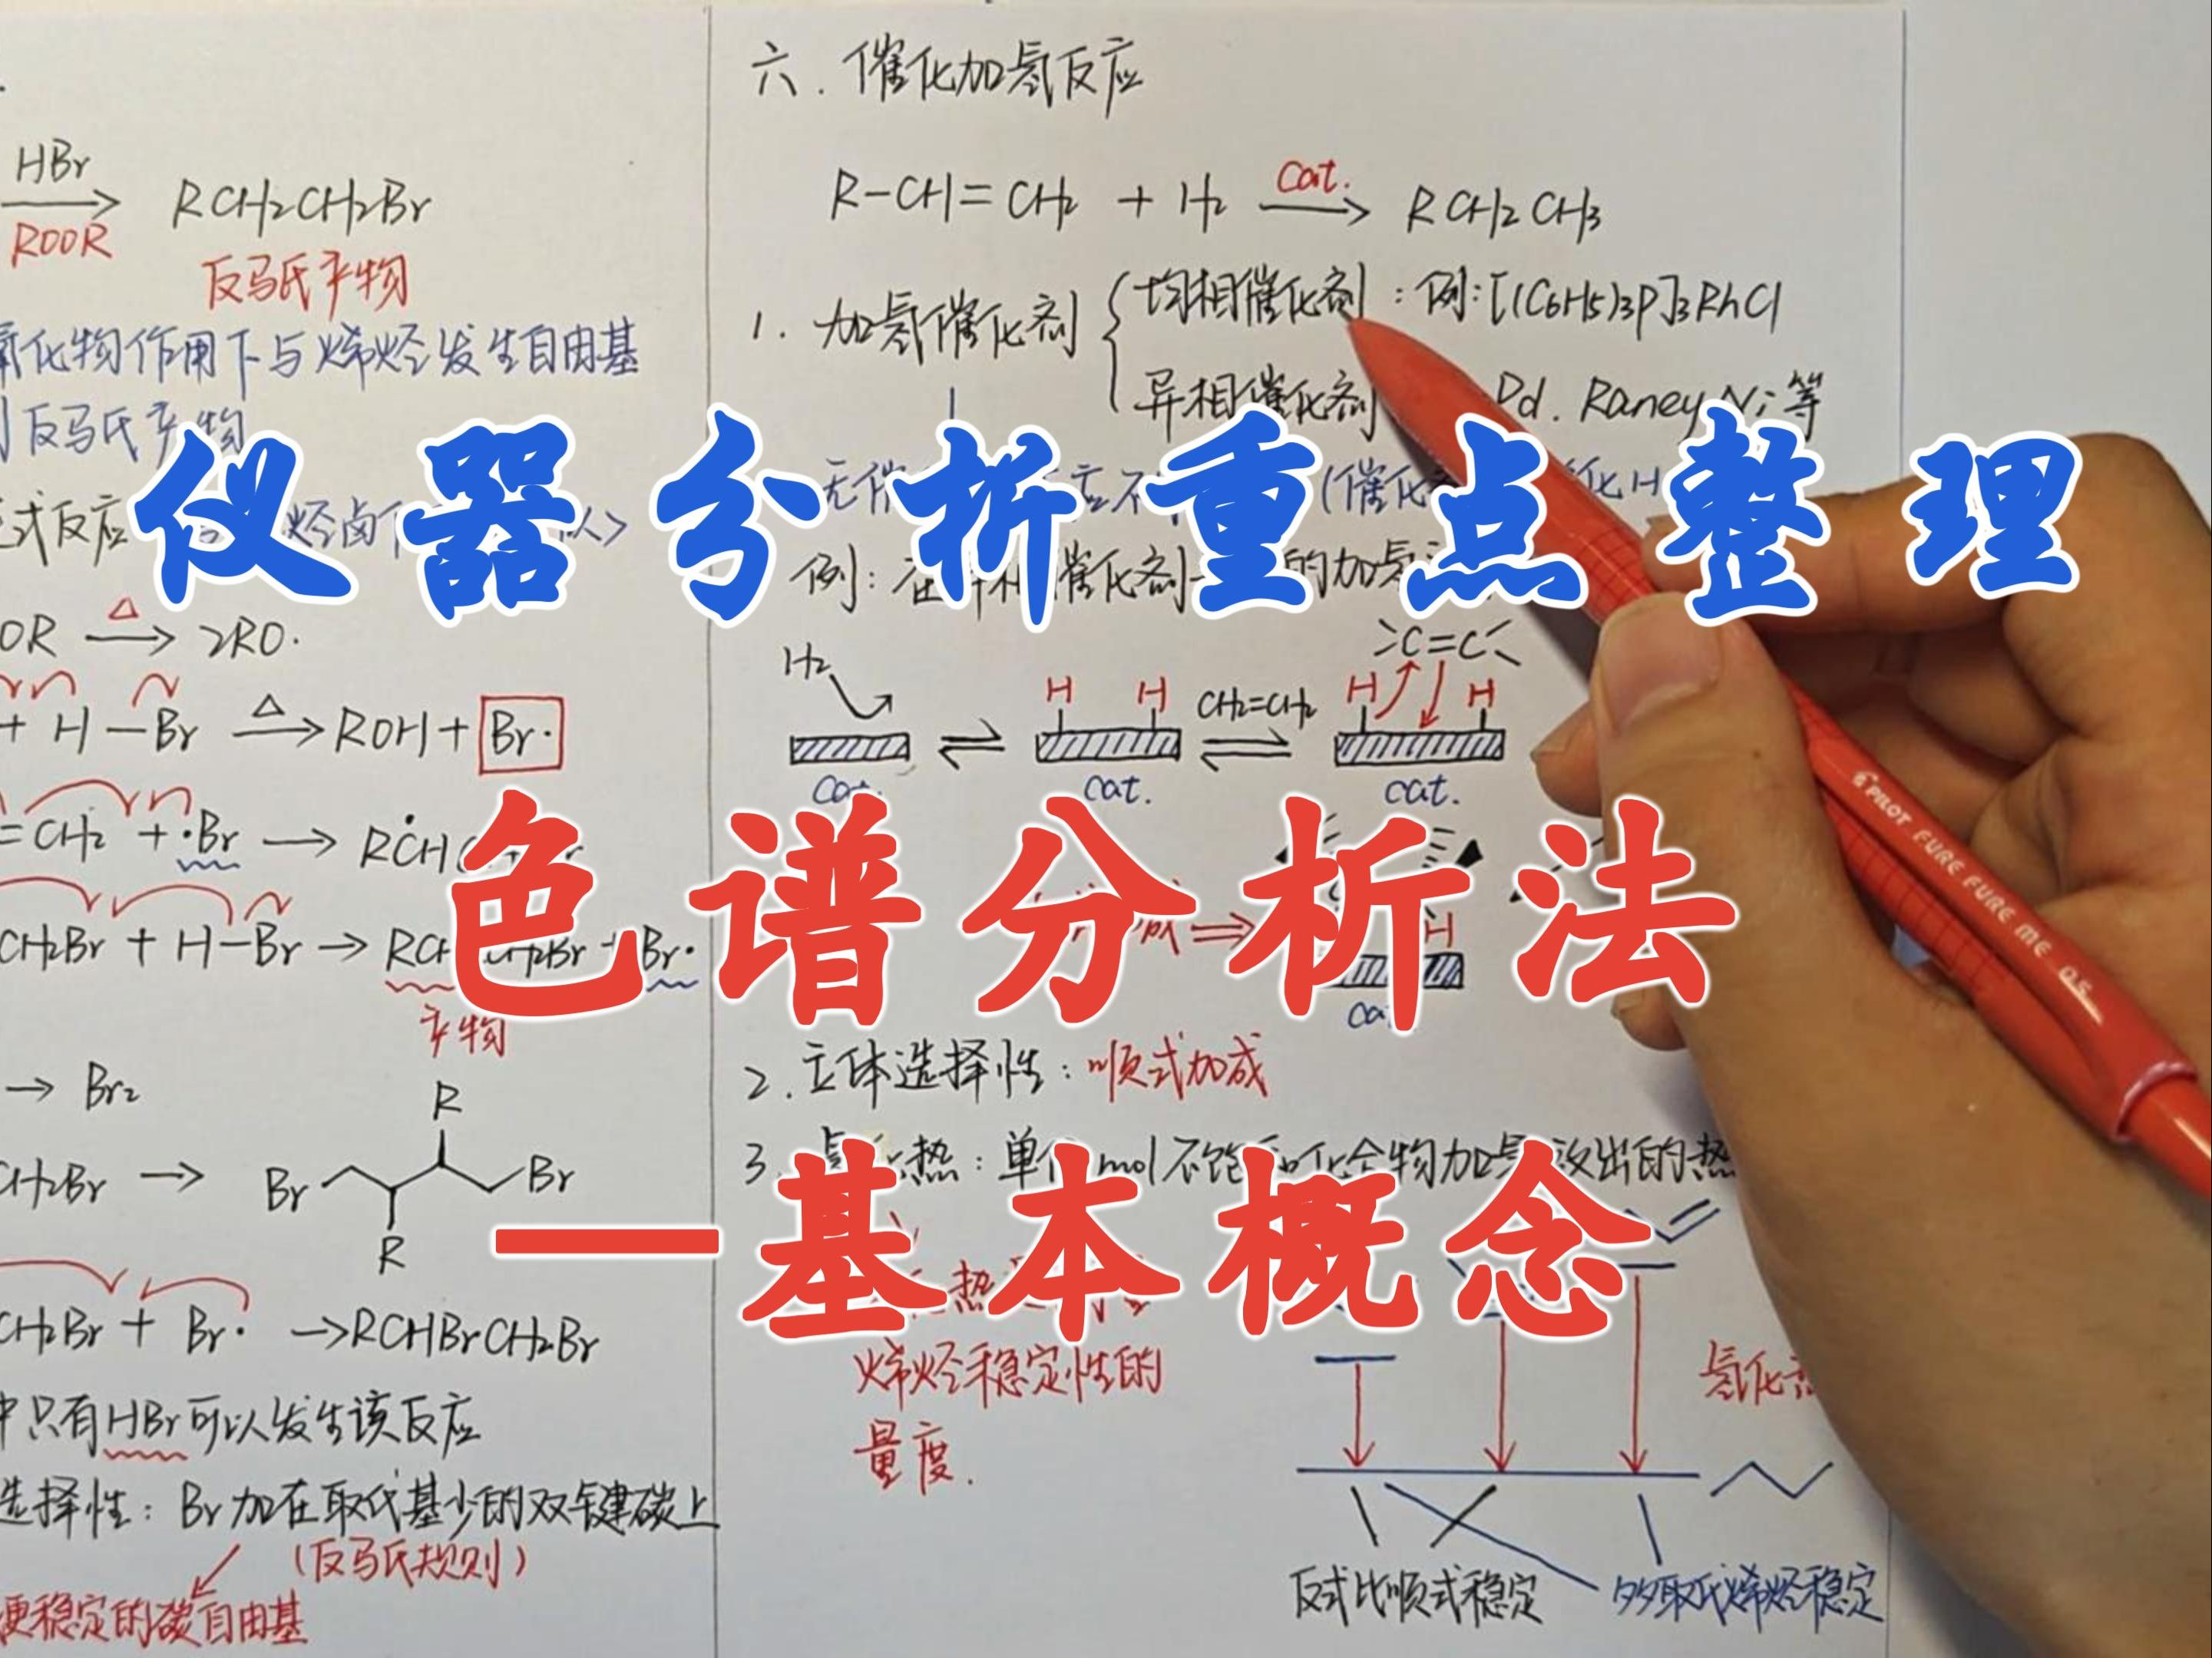 HBr
ROOR
RCH2CH2Br
反马氏产物
氧化物作用下与烯烃发生自由基
反马氏产物
式反应
OR △ → 2RO·
+ H—Br △ → ROH + Br·
=CH2 + ·Br → RĊH
CH2Br + H—Br → RCH CH2Br + Br·
产物
→ Br2
CH2Br →
R
Br
Br
R
CH2Br + Br· → RCHBrCH2Br
只有HBr可以发生该反应
选择性：Br加在取代基少的双键碳上
（反马氏规则）
更稳定的碳自由基
六．催化加氢反应
R-CH=CH2 + H2 cat. → RCH2CH3
1．加氢催化剂
均相催化剂：例：[(C6H5)3P]3RhCl
异相催化剂
Pd．Raney Ni等
仪器分析重点整理
H2
H H
CH2=CH2
C=C
H H
cat.
cat.
cat.
色谱分析法
H
2．立体选择性：顺式加成
3．
热：单位mol不饱和化合物加氢放出的热
—基本概念
烯烃稳定性的
量度．
氢化热
反式比顺式稳定
多取代烯烃稳定
PILOT FURE FURE ME 0.5